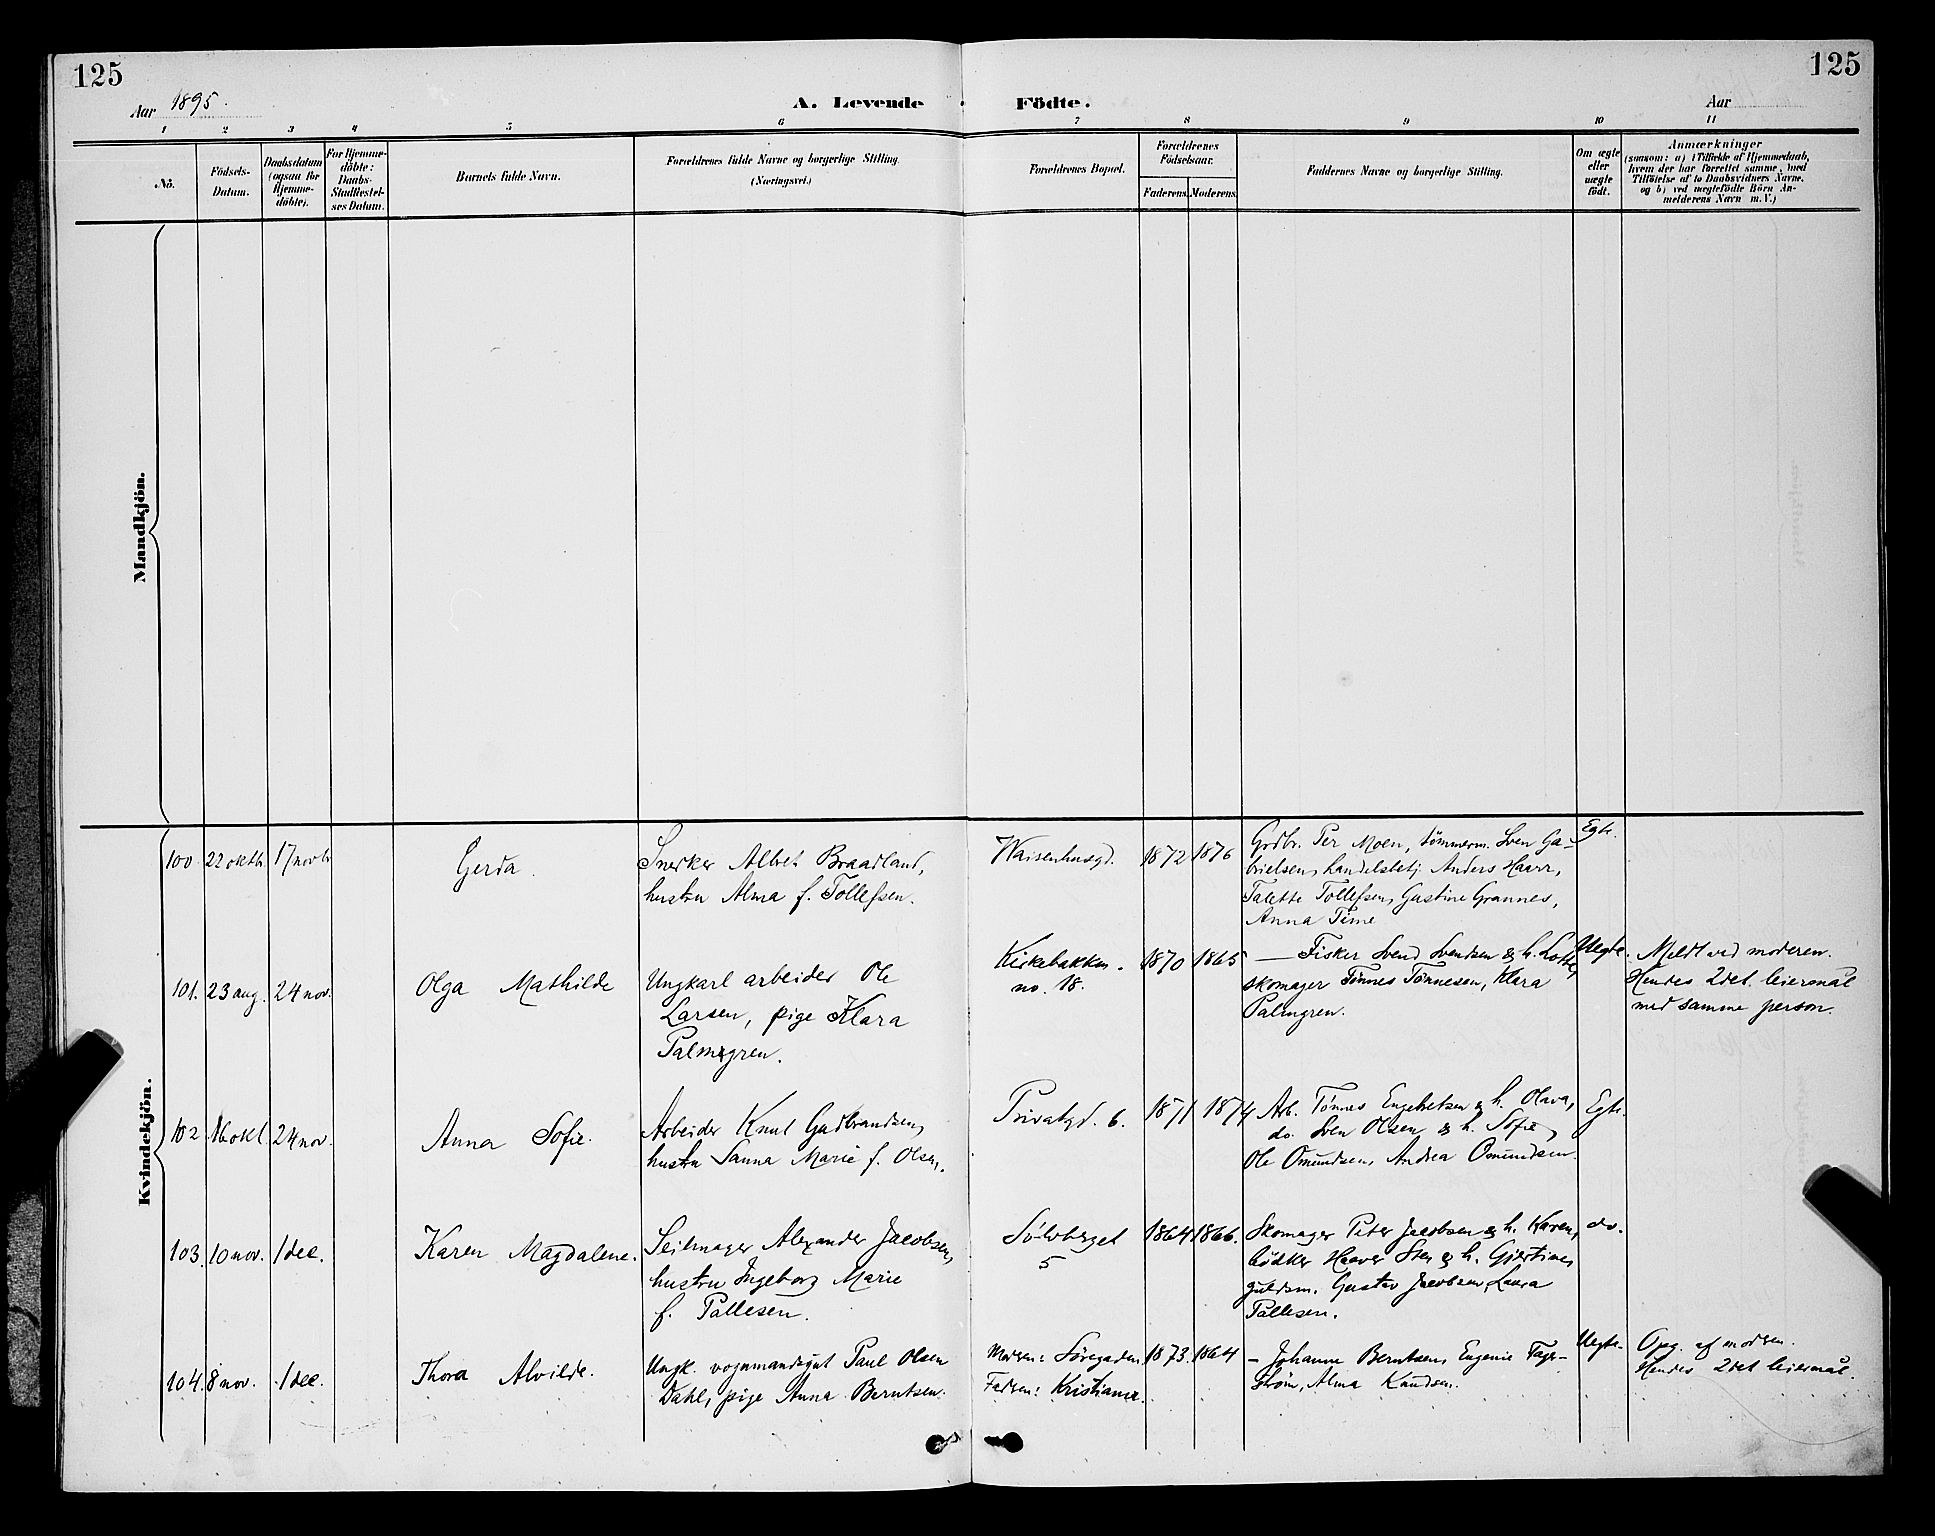 125
125
Aar 1895.
A. Levende Födte.
Aar
1 2 3 4 5 6 7 8 9 10 11
No.
Födsels-
Datum.
Daabsdatum
(ogsaa for
Hjemme-
döbte).
For Hjemme-
döbte:
Daabs-
Stadfæstel-
ses Datum.
Barnets fulde Navn.
Forældrenes fulde Navne og borgerlige Stilling
(Næringsvei.)
Forældrenes Bopæl.
Forældrenes
Födselsaar.
Faderens. Moderens.
Faddernes Navne og borgerlige Stilling.
Om ægte
eller
uægte
født.
Anmærkninger
(saasom: a) i Tilfælde af Hjemmedaab,
hvem der har forrettet samme, med
Tilföielse af to Daabsvidners Navne.
og b) ved uægtefödte Börn An-
melderens Navn m.V.)
Mandkjön.
Kvindekjön.
100. 22 oktb. 17 novb.
Gerda.
Snerker Albret Braadland,
hustru Alma f. Tollefsen.
Waisenhusgd.
1872 1876
Grdbr. Per Moen, tømmerm. Sven Ga-
brielsen, handelsbetj. Anders Haarr,
Talette Tollefsen, Gustine Grannes,
Anna Time
Egte.
101. 23 aug. 24 nov.
Olga Mathilde
Ungkarl arbeider Ole
Larsen, pige Klara
Palmgren.
Kirkebakken.
no. 18.
1870 1865
— Fisker Svend Svendsen & h. Lotte,
skomager Tønnes Tønnesen, Klara
Palmgren.
Uegte.
Meldt ved moderen.
Hendes 2det leiersmål
med samme person.
102 16 okt. 24 nov.
Anna Sofie.
Arbeider Knut Gudbrandsen,
hustru Sanna Marie f. Olsen.
Privatgd. 6.
1871 1874
Arb. Tønnes Engebretsen & h. Olava,
do. Sven Olsen & h. Sofie,
Ole Omundsen, Andrea Omundsen.
Egte.
103. 10 nov. 1 dec.
Karen Magdalene.
Seilmager Alexander Jacobsen,
hustru Ingeborg Marie
f. Pallesen.
Sølvberget
5
1864 1866.
Skomager Peter Jacobsen & h. Karen,
bødker Haaver Sten & h. Gjertine,
guldsm. Gustav Jacobsen, Laura
Pallesen.
do.
104. 8 nov. 1 dec.
Thora Alvilde.
Ungk. vognmandsgut Paul Olsen
Dahl, pige Anna Berntsen.
Moren: Søregaden
Faren: Kristiania.
1873. 1864
— Johanne Berntsen, Eugenie Fager-
strøm, Alma Knudsen.
Uegte.
Opg. af moren.
Hendes 2det leiersmål.